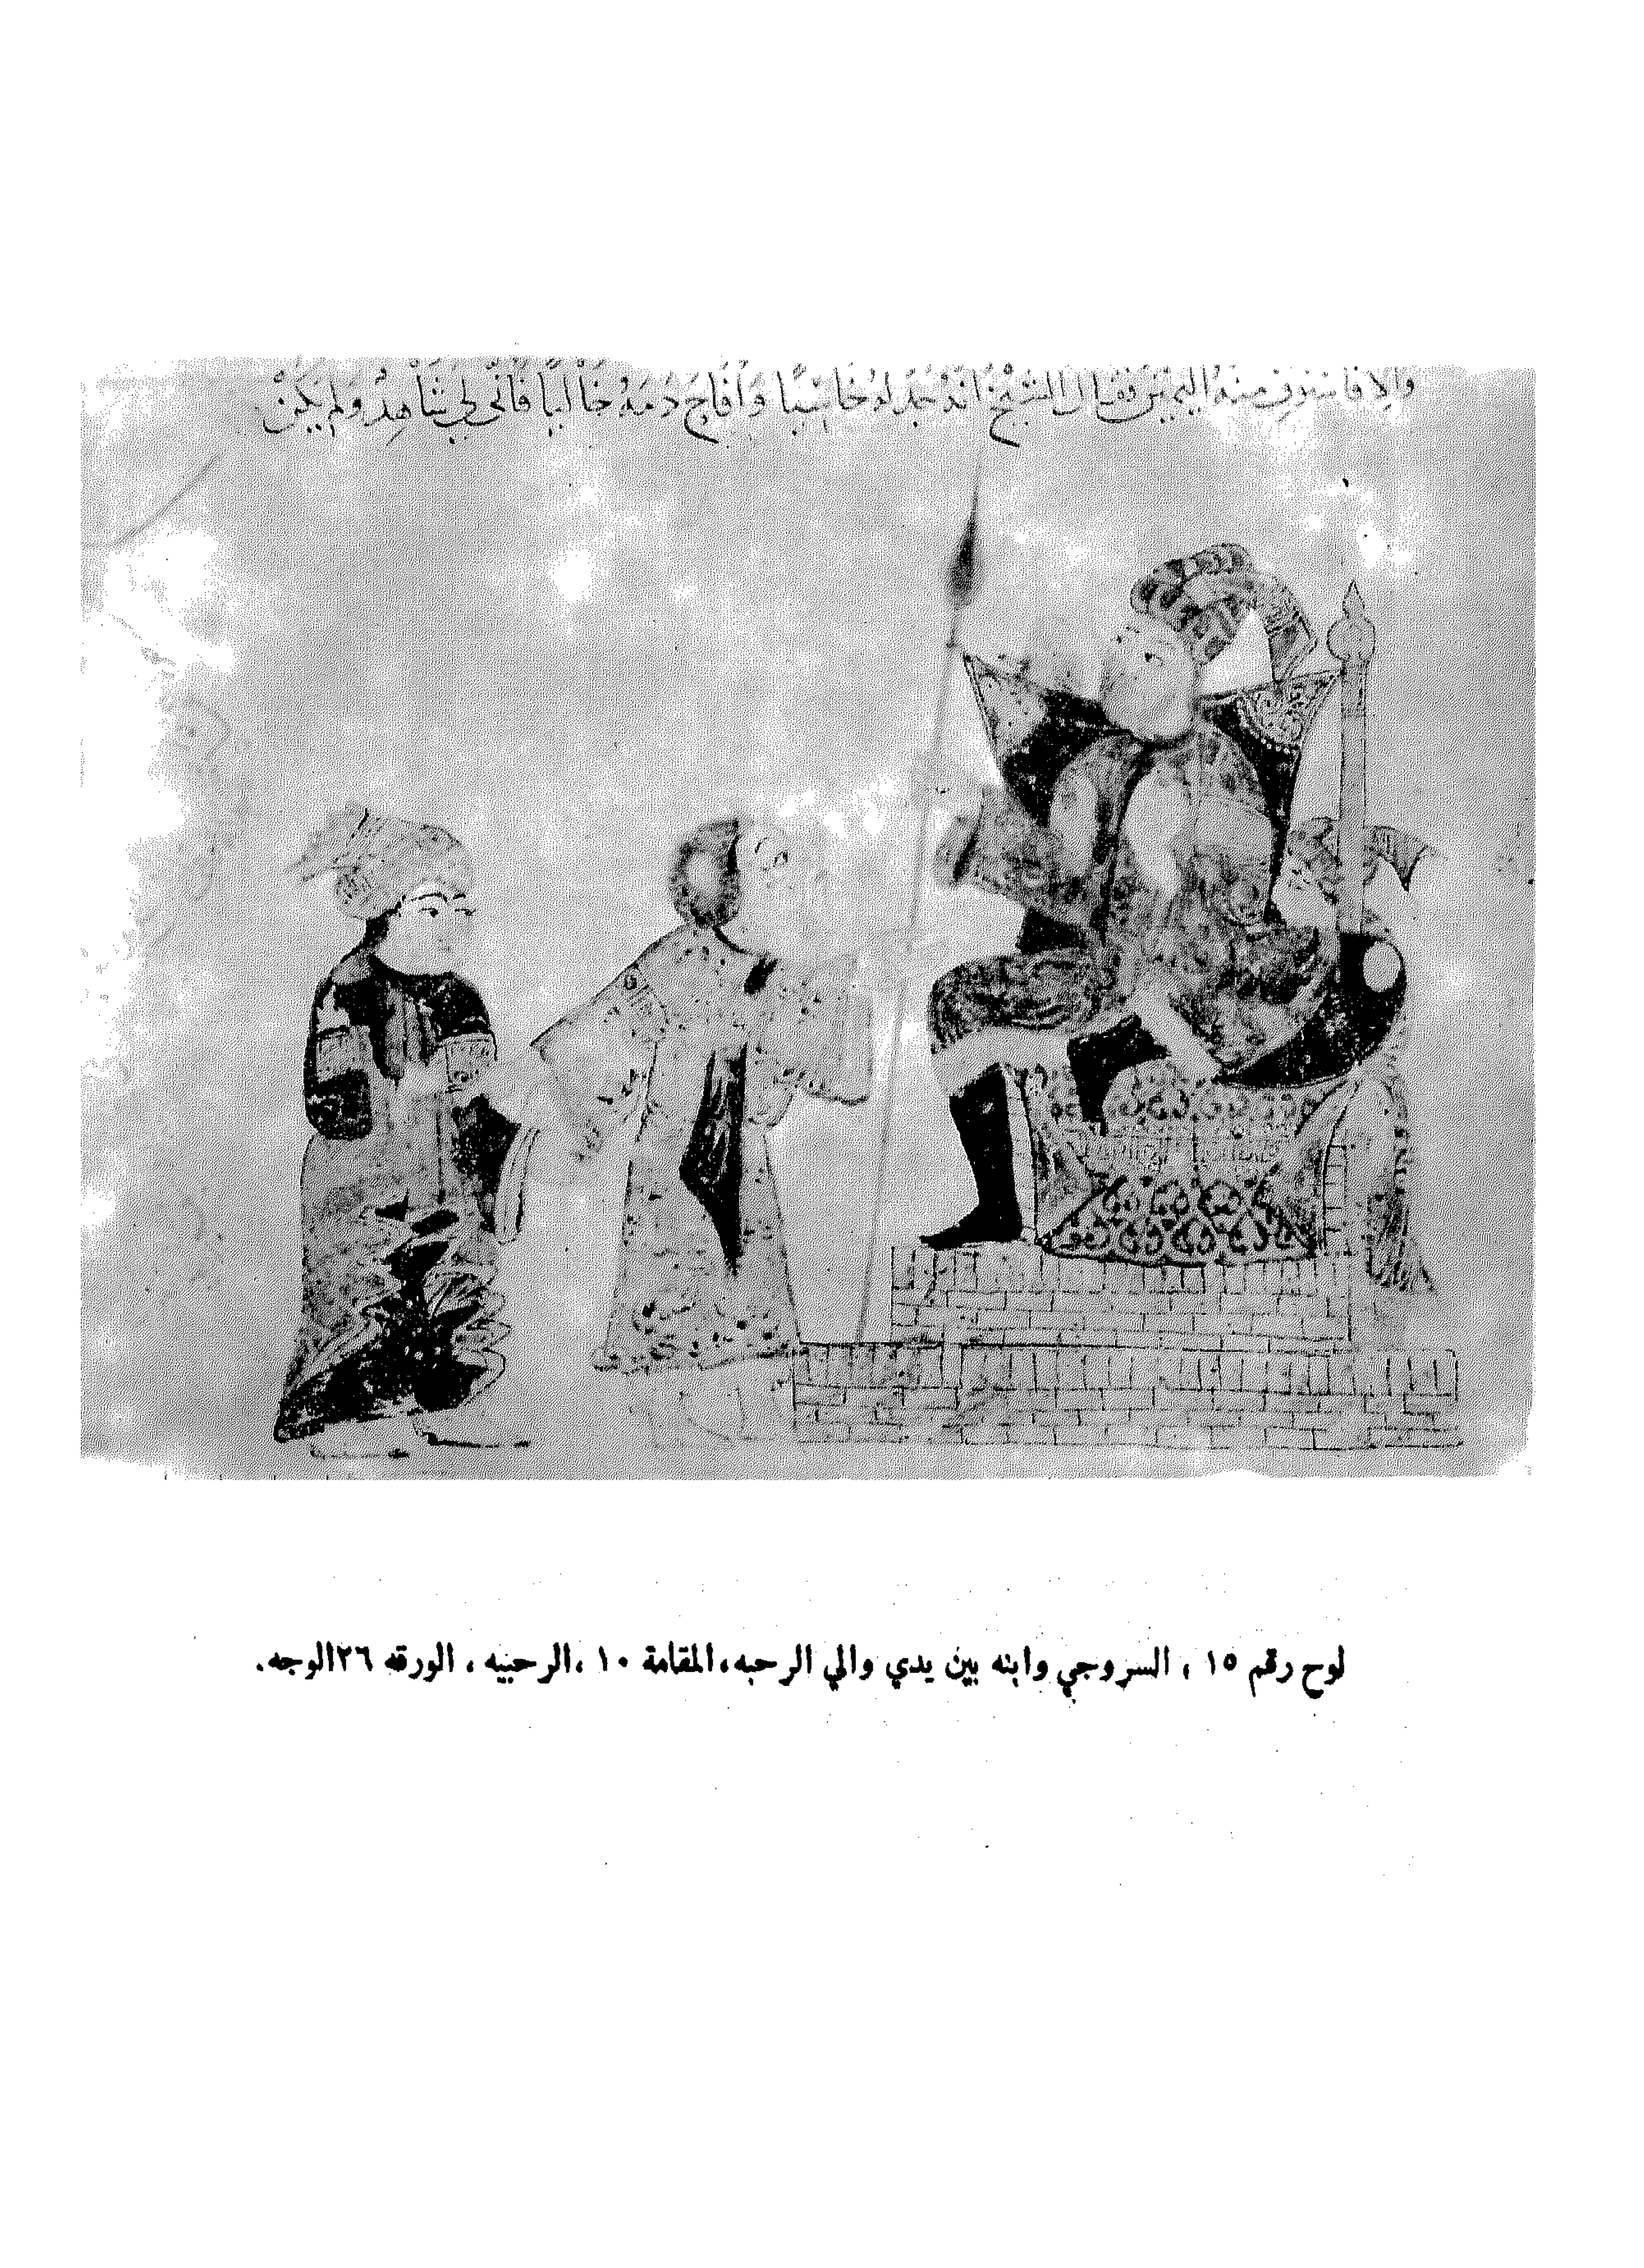 والا فاستوف منه اليمين فقال الشيخ انه جدله خاسيا وافاح دمه خاليا فانى لي شاهد ولم يكن
لوح رقم ١٥ ، السروجي وابنه بين يدي والي الرحبه، المقامة ١٠ ،الرحبيه ، الورقه ٢٦الوجه.